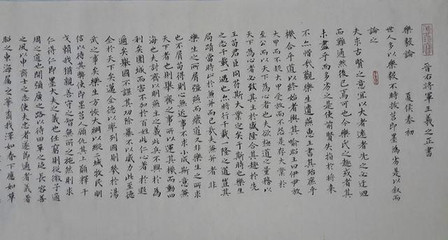 樂毅論 晉右將軍王羲之正書
夏侯泰初
世人多以樂毅不時拔莒即墨為劣是以敘而
論之
夫求古賢之意宜以大者遠者先之必迂迴
而難通然後已焉可也今樂氏之趣或者其
未盡乎而多劣之是使前賢失指於將來
不亦惜哉觀樂生遺燕惠王書其殆庶乎
機合乎道以終始者與其喻昭王曰伊尹放
大甲而不疑大甲受放而不怨是存大業於
至公而以天下為心者也夫欲極道之量務以
天下為心者必致其主於盛隆合其趣於先
王苟君臣同符斯大業定矣于斯時也樂生
之志千載一遇也亦將行千載一隆之道豈其
局蹟當時止於兼并而已哉夫兼并者非
樂生之所屑彊燕而廢道又非樂生之所求
也不屑苟得則心無近事不求小成斯意兼
天下者也則舉齊之事所以運其機而動四
海也夫討齊以明燕主之義此兵不興於為
利矣圍城而害不加於百姓此仁心著於遐
邇矣舉國不謀其功除暴不以威力此至德
令於天下矣邁至德以率列國則幾於湯
武之事矣樂生方恢大綱以縱二城牧民明
信以待其弊使即墨莒人顧仇其上願釋干
戈賴我猶親善守之智無所之施然則求
仁得仁即墨大夫之義也任窮則從微子適
周之道也開彌廣之路以待田單之徒長容善
之風以申齊士之志使夫忠者遂節通者義著
昭之東海屬之華裔我澤如春下應如草